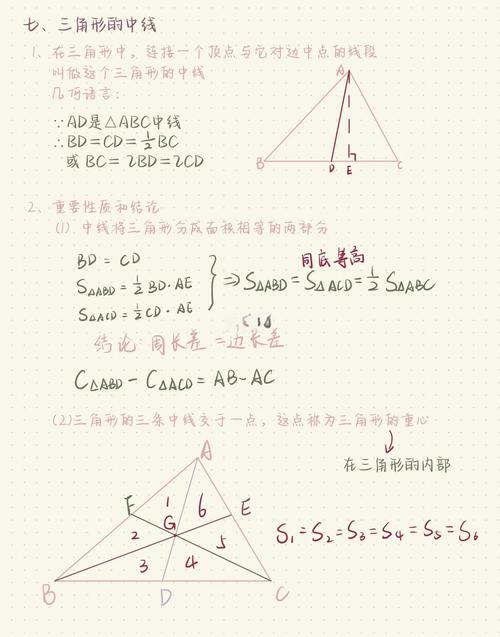 七、三角形的中线
1、在三角形中，连接一个顶点与它对边中点的线段
叫做这个三角形的中线
几何语言：
∵AD是△ABC中线
∴BD=CD=½BC
或BC=2BD=2CD
A
B
D
E
C
2、重要性质和结论
(1) 中线将三角形分成面积相等的两部分
BD=CD
S△ABD=½BD·AE
S△ACD=½CD·AE
同底等高
⇒S△ABD=S△ACD=½S△ABC
结论：周长差=边长差
C△ABD-C△ACD=AB-AC
(2)三角形的三条中线交于一点，这点称为三角形的重心
↓
在三角形的内部
A
F
1
6
E
G
2
5
3
4
B
D
C
S₁=S₂=S₃=S₄=S₅=S₆